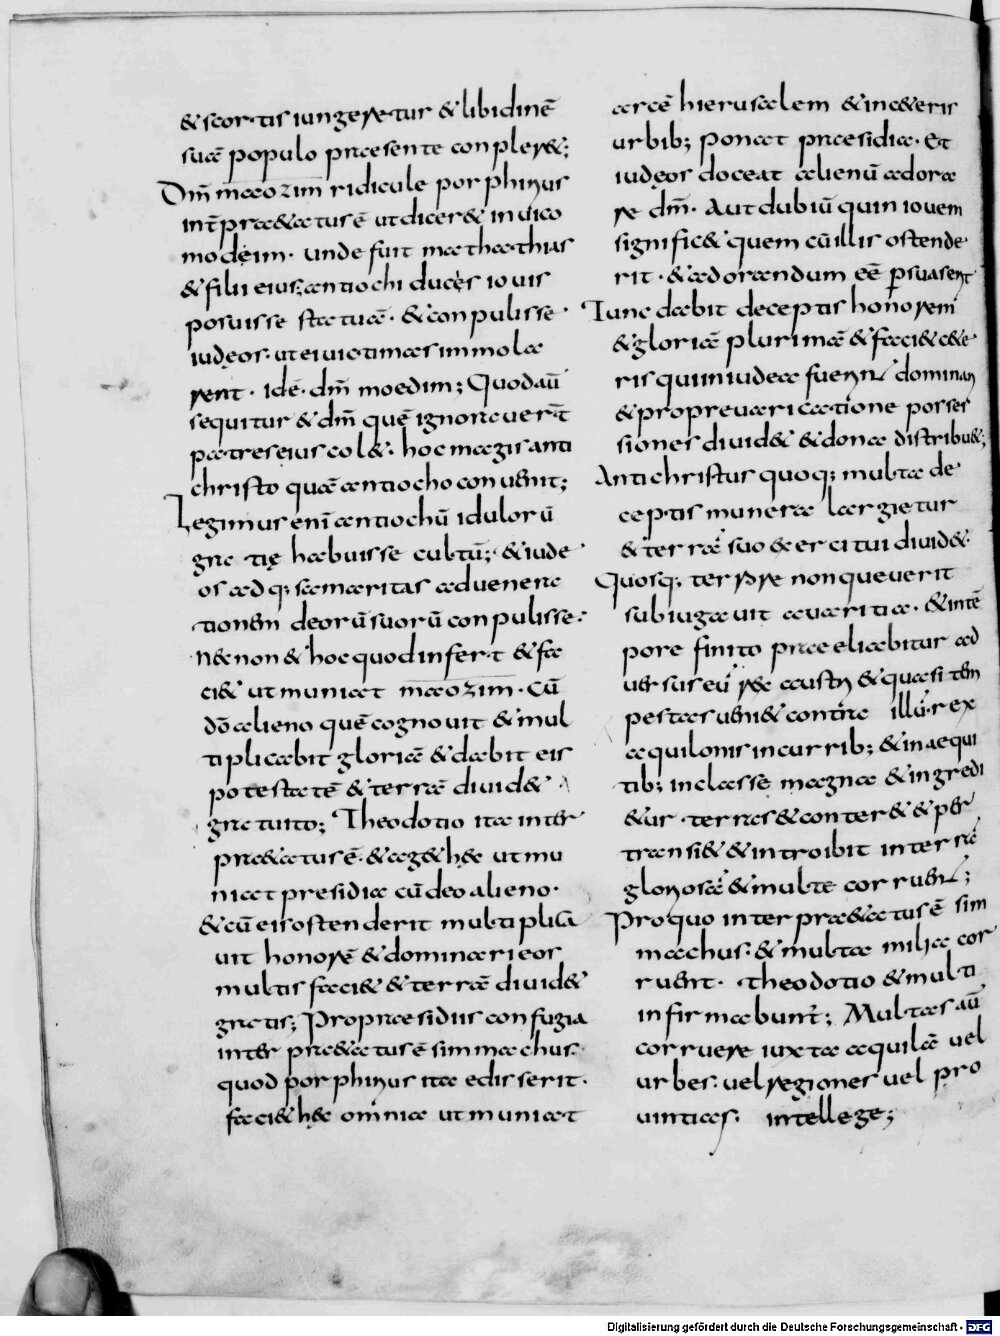 & scortis iungeretur & libidinē
suā populo praesente conplere&;
Dm̄ maozim ridicule porphirius
int̄pra&atus ē ut dicer& in uico
modeim. unde fuit mathathias
& filii eius, antiochi duces iouis
posuisse statuā. & conpulisse
iudęos. ut ei uictimas immola
rent. idē. dm̄ moedim; Quod aū
sequitur & dm̄ quē ignorauer̄t
patres eius col&. hoc magis anti
christo quā antiocho conuenit;
Legimus enī antiochū idulorū
gratię habuisse cultū; & iude
os adq; samaritas ad uenera
tionem deorū suorū conpulisse.
n&non & hoc quod infert & fa
ci& ut muniat maozim. cū
dō alieno quē cognouit & mul
tiplicabit gloriā & dabit eis
potestatē & terrā diuid&
gratuito; Theodotio ita inter
pra&atus ē. & ag& hęc ut mu
niat presidia cū deo alieno.
& cū eis ostenderit multiplica
uit honorē & dominari eos
multis faci& & terrā diuid&
gratis; Pro praesidiis confugia
inter pra&atus ē simmachus.
quod porphirius ita edisserit.
faci& hęc omnia ut muniat
arcē hierusalem & in c&eris
urbib; ponat praesidia. Et
iudęos doceat alienū adora
re dm̄. Aut dubiū quin iouem
signific& quem cū illis ostende
rit. & adorandum eē p̄suaserit
Tunc dabit deceptis honorem
& gloriā plurimā & faci& c&e
ris qui in iudea fuerint dominari
& pro preuaricatione posses
siones diuid& & dona distribu&;
Antichristus quoq; multa de
ceptis munera largietur
& terrā suo exercitui diuid&
Quosq; terrere non queuerit
subiugauit auaritia. & in tē
pore finito praeeliabitur ad
uersus eū rex austri & quasi tem
pestas ueni& contra illū. rex
aquilonis in currib; & in aequi
tib; in classe magna & ingredi
&ur. terras & conter& & per
transi& & introibit in terrā
gloriosā & multe corruent;
Pro quo inter pra&atus ē sim
machus. & multa milia cor
ruent. theodotio & multi
infirmabunt̄; Multas aū
corruere iuxta aquilā uel
urbes. uel regiones uel pro
uintias. intellege;
Digitalisierung gefördert durch die Deutsche Forschungsgemeinschaft - DFG